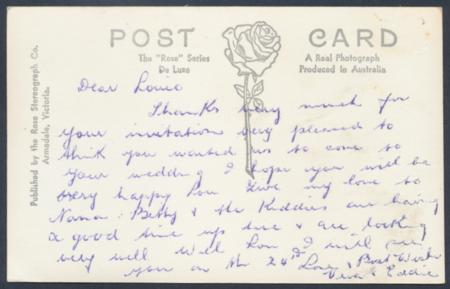 POST CARD
The "Rose" Series
De Luxe
A Real Photograph
Produced in Australia
Published by the Rose Stereograph Co.
Armadale, Victoria.
Dear
Thanks very much for
your invitation very pleased to
think you wanted us to come to
your wedding I hope you will be
very happy give my love to
Nana. Betty & the Kiddies are having
a good time up here & are looking
very well well I will see
you on the 24th Love & Best Wishes
& Eddie